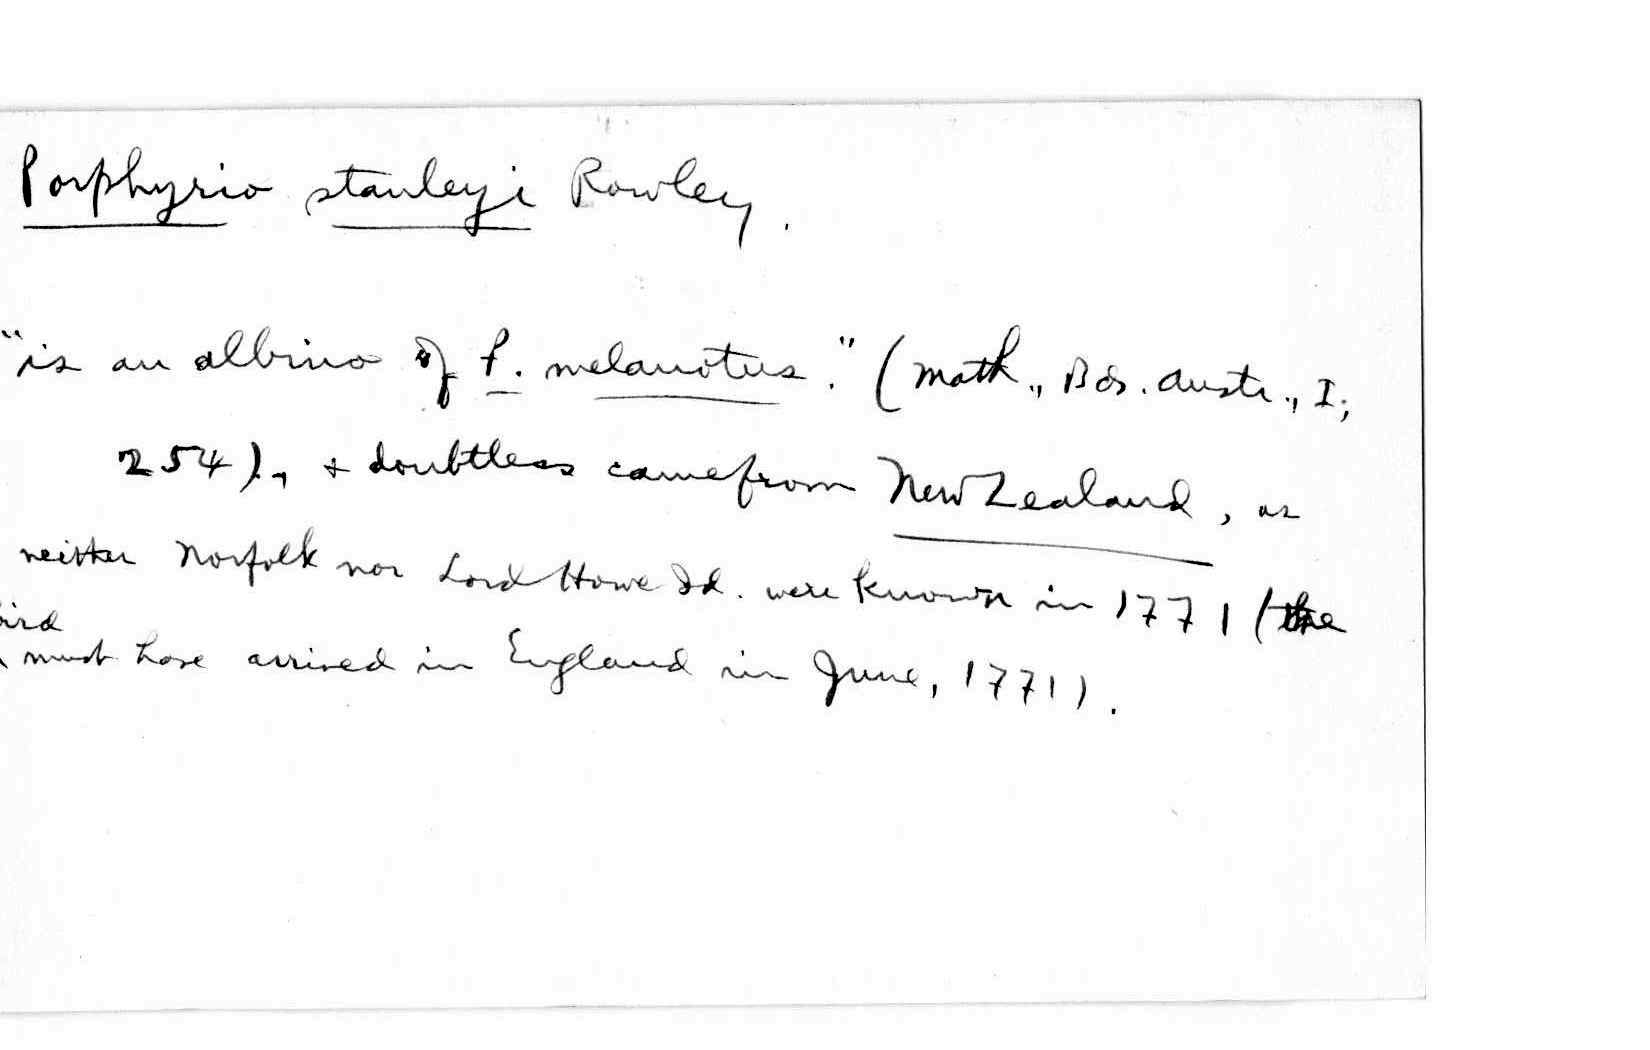 Porphyrio stanleyi Rowley.
"is an albino of P. melanotus." (Math., Bds. Austr., I,
254)., + doubtless came from New Zealand, as
neither Norfolk nor Lord Howe Id. were known in 1771 (the
bird
must have arrived in England in June, 1771).